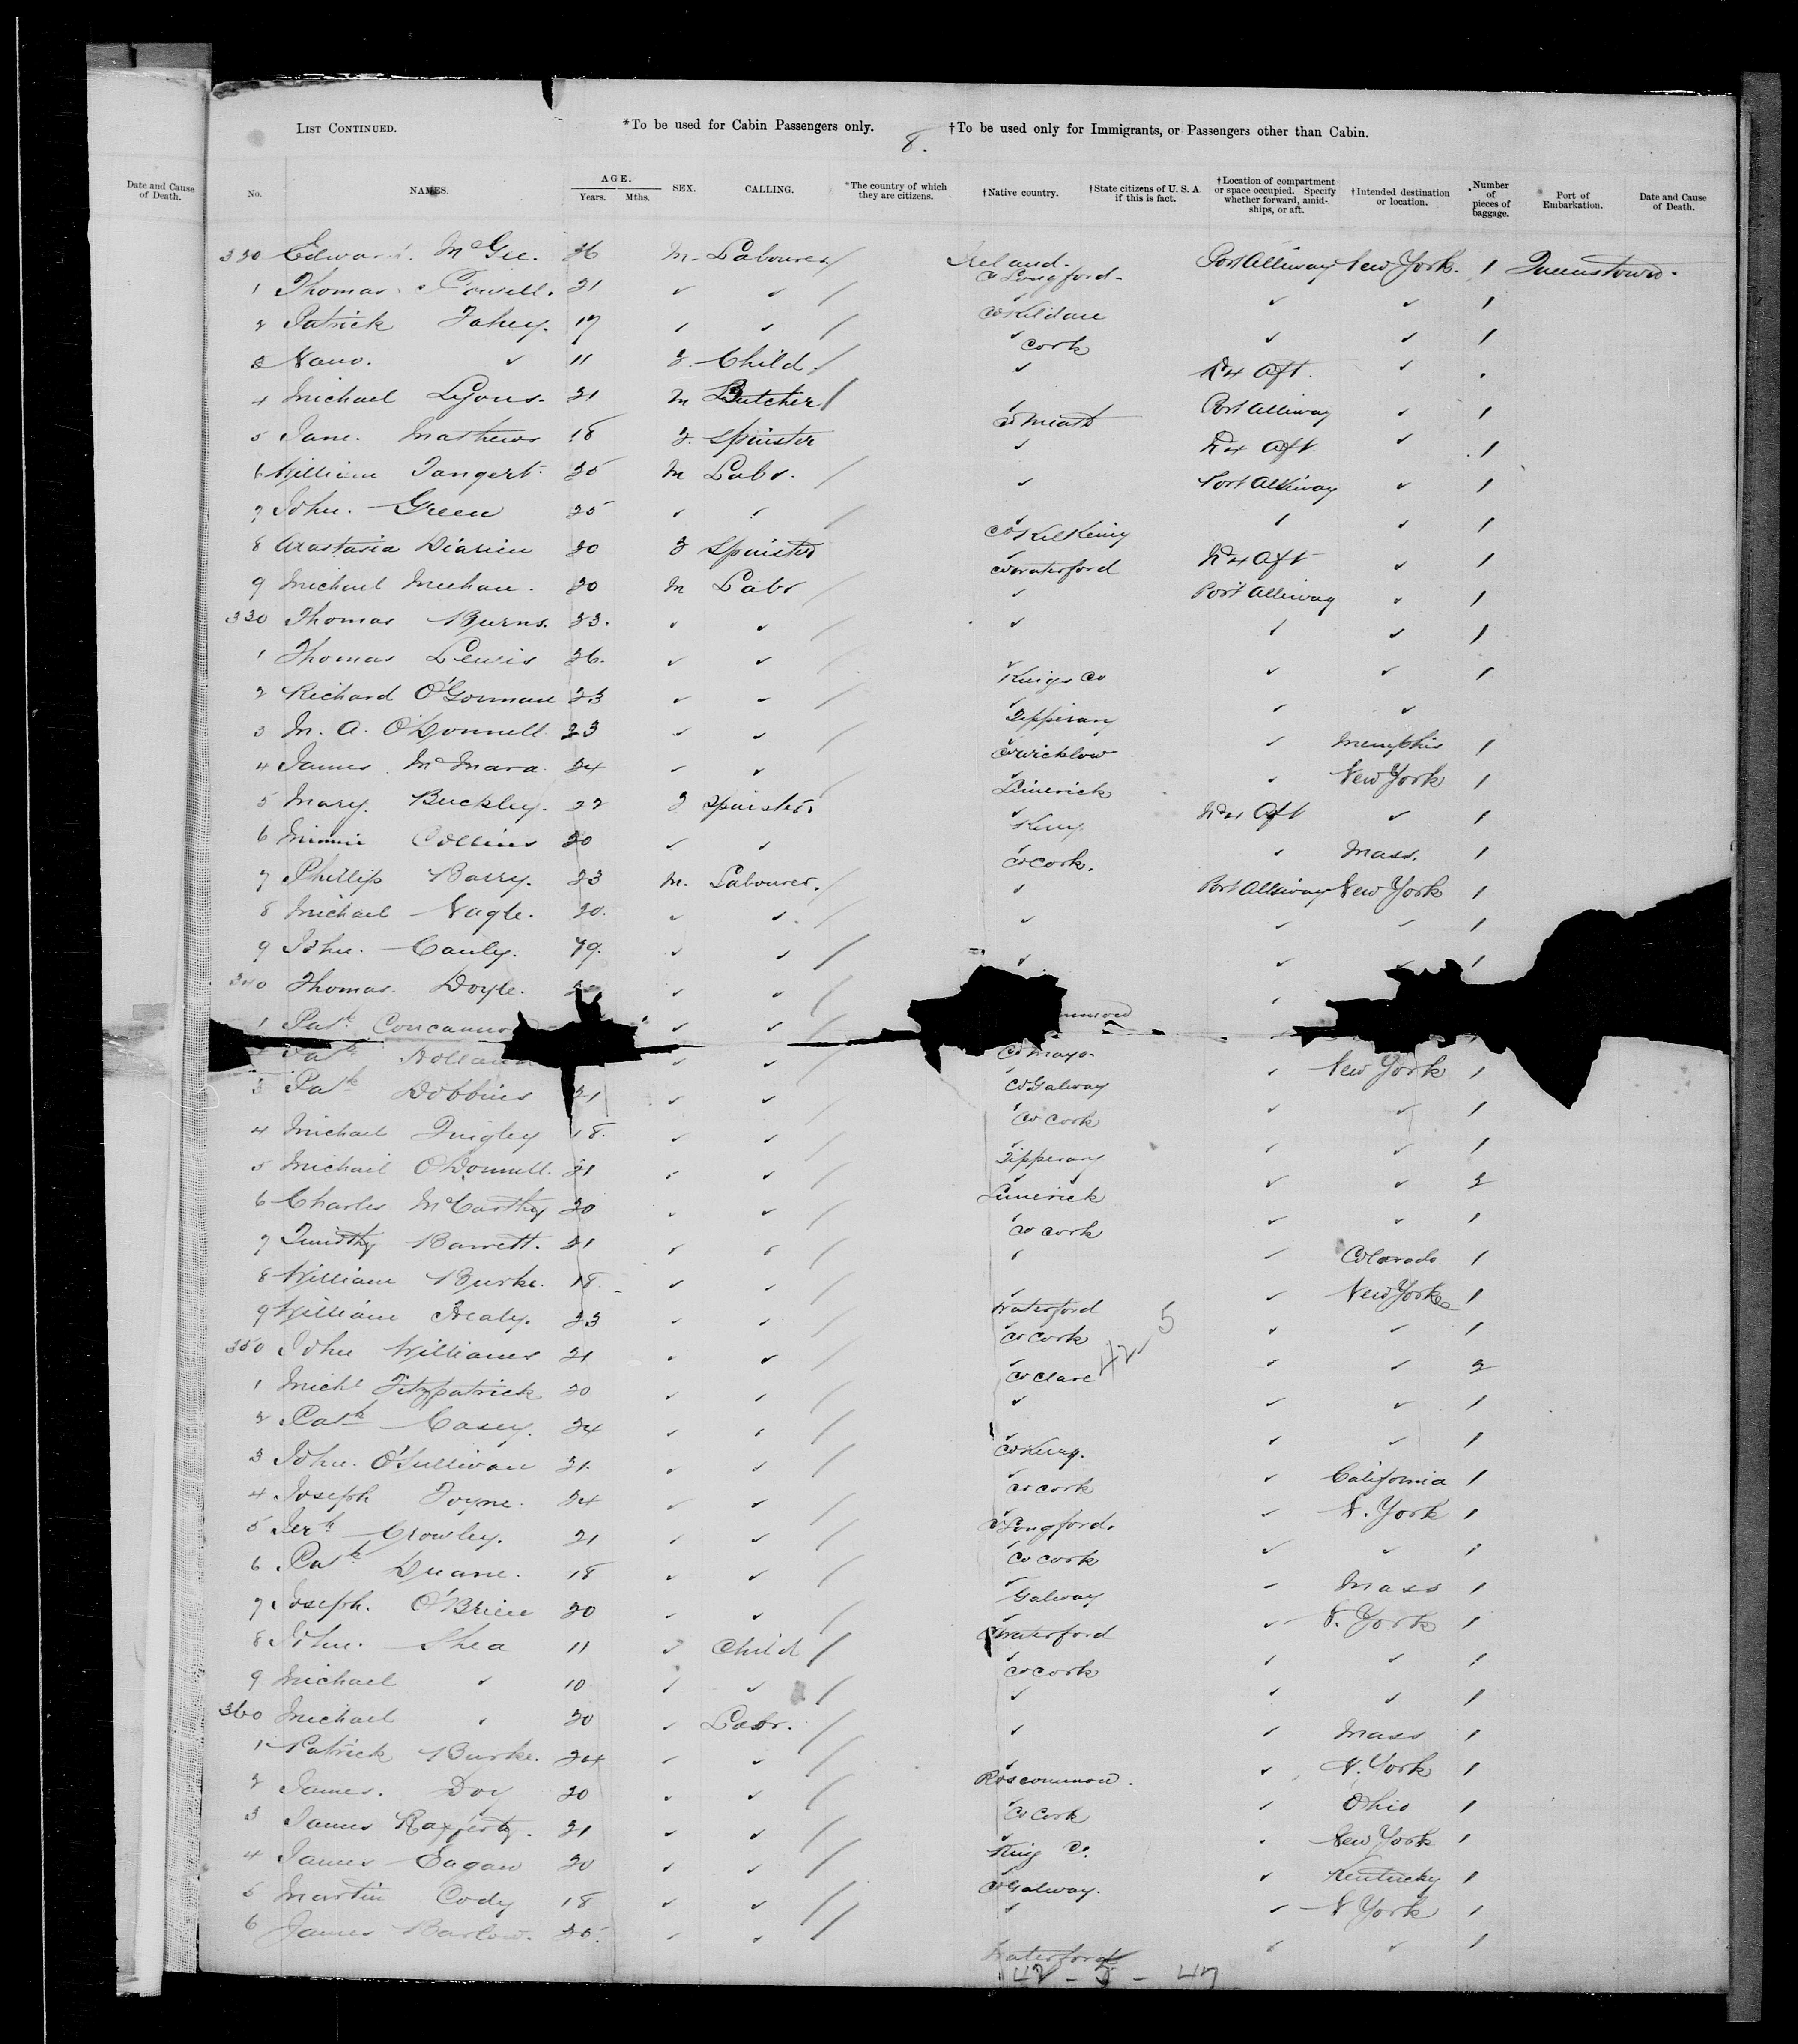 LIST CONTINUED. *To be used for Cabin Passengers only. 8. †To be used only for Immigrants, or Passengers other than Cabin.
Date and Cause of Death. No. NAMES. AGE. Years. Mths. SEX. CALLING. *The country of which they are citizens. †Native country. †State citizens of U. S. A. if this is fact. †Location of compartment or space occupied. Specify whether forward, amidships, or aft. †Intended destination or location. Number of pieces of baggage. Port of Embarkation. Date and Cause of Death.
Edward McGee. 26 M. Labourer / Ireland. Co Longford Port Alliway New York. 1 Queenstown.
1 Thomas Powell. 21 ✓ ✓ / ✓ Co Kildare ✓ ✓ 1
2 Patrick Fahey. 17 ✓ ✓ / ✓ Cork ✓ ✓ 1
3 Nano. ✓ 11 F. Child / ✓ Aft. ✓
4 Michael Lyons. 21 M Butcher / ✓ Co Meath Port Alliway ✓ 1
5 Jane. Mathews 18 F. Spinster ✓ Aft ✓ 1
6 William 35 M Labr. / ✓ Port Alliway ✓ 1
7 John. Green 25 ✓ ✓ / ✓ Co Kilkenny ✓ ✓ 1
8 Anastasia 20 F Spinster ✓ Co Waterford Aft ✓ 1
9 Michael Meehan. 20 M Labr / ✓ Port Alliway ✓ 1
330 Thomas Burns. 23. ✓ ✓ / ✓ ✓ ✓ 1
1 Thomas Lewis 26. ✓ ✓ / ✓ Kings Co ✓ ✓ 1
2 Richard O'Gorman 23 ✓ ✓ / ✓ Tipperary ✓ ✓
3 M. A. O'Donnell 23 ✓ ✓ / ✓ Co Wicklow ✓ Memphis 1
4 James McMara. 24 ✓ ✓ ✓ Limerick ✓ New York 1
5 Mary. Buckley. 22 F Spinster ✓ Kerry Aft ✓ 1
6 Minnie Collins 20 ✓ ✓ ✓ Co Cork. ✓ Mass. 1
7 Phillip Barry. 23 M. Labourer. / ✓ Port Alliway New York 1
8 Michael Nagle. 20. ✓ ✓ / ✓ ✓ ✓ 1
9 John. Cauly. 19. ✓ ✓ / ✓ ✓ ✓ 1
340 Thomas. Doyle. ✓ ✓ /
1 Patk Concannon ✓ ✓ /
Patk Holland ✓ ✓ Co Mayo. ✓ New York 1
3 Patk Dobbins 21 ✓ ✓ / ✓ Co Galway ✓ ✓ 1
4 Michael Quigley 18. ✓ ✓ / ✓ Co Cork ✓ ✓ 1
5 Michael O'Donnell. 21 ✓ ✓ / ✓ Tipperary ✓ ✓ 2
6 Charles McCarthy 20 ✓ ✓ / ✓ Limerick ✓ ✓ 1
7 Timothy Barrett. 21 ✓ ✓ / ✓ Co Cork ✓ Colorado 1
8 William Burke. 18 ✓ ✓ / ✓ Waterford ✓ New York 1
9 William Healy. 23 ✓ ✓ / ✓ Co Cork ✓ ✓ 1
350 John Williams 21 ✓ ✓ / ✓ Co Clare 42 5 ✓ ✓ 2
1 Michl Fitzpatrick 20 ✓ ✓ / ✓ ✓ ✓ 1
2 Patk Casey. 24 ✓ ✓ / ✓ Co Kerry. ✓ ✓ 1
3 John. O'Sullivan 21. ✓ ✓ / ✓ Co Cork ✓ California 1
4 Joseph Foyne. 24 ✓ ✓ / ✓ Co Longford. ✓ N. York 1
5 Jerh Crowley. 21 ✓ ✓ / ✓ Co Cork ✓ ✓ 1
6 Patk Duane. 18 ✓ ✓ / ✓ Galway ✓ Mass 1
7 Joseph. O'Brien 20 ✓ ✓ / ✓ Waterford ✓ N. York 1
8 John. Shea 11 ✓ Child / ✓ Co Cork ✓ ✓ 1
9 Michael ✓ 10 ✓ ✓ / ✓ ✓ ✓ 1
360 Michael ✓ 20 ✓ Labr. / ✓ ✓ Mass 1
1 Patrick Burke. 24 ✓ ✓ / ✓ Roscommon. ✓ N. York 1
2 James. Doy 20 ✓ ✓ / ✓ Co Cork ✓ Ohio 1
3 James Rafferty. 21 ✓ ✓ / ✓ King Co. ✓ New York 1
4 James Eagan 20 ✓ ✓ / ✓ Co Galway. ✓ Kentucky 1
5 Martin Cody 18 ✓ ✓ // ✓ ✓ N York 1
6 James Barlow. 25. ✓ ✓ Waterford ✓ ✓ 1
42 - 5 - 47